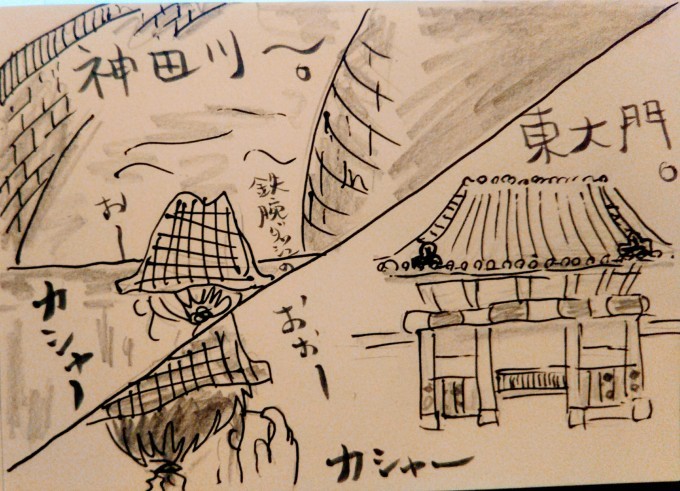 神田川〜。
おー
鉄腕ダッシュの
カシャー
東大門。
おぉー
カシャー